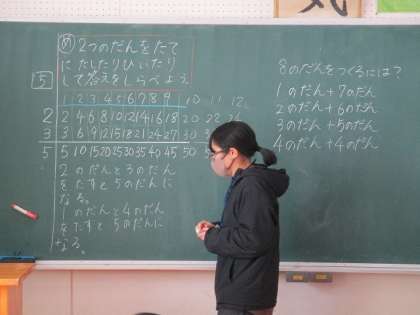 め 2つのだんをたて
にたしたりひいたり
して答えをしらべよう
5
1 2 3 4 5 6 7 8 9 10 11 12
2 2 4 6 8 10 12 14 16 18 20 22 24
3 3 6 9 12 15 18 21 24 27 30
5 5 10 15 20 25 30 35 40 45 50
2のだんと3のだん
をたすと5のだんに
なる。
1のだんと4のだん
をたすと5のだんに
なる。
8のだんをつくるには?
1のだん+7のだん
2のだん+6のだん
3のだん+5のだん
4のだん+4のだん